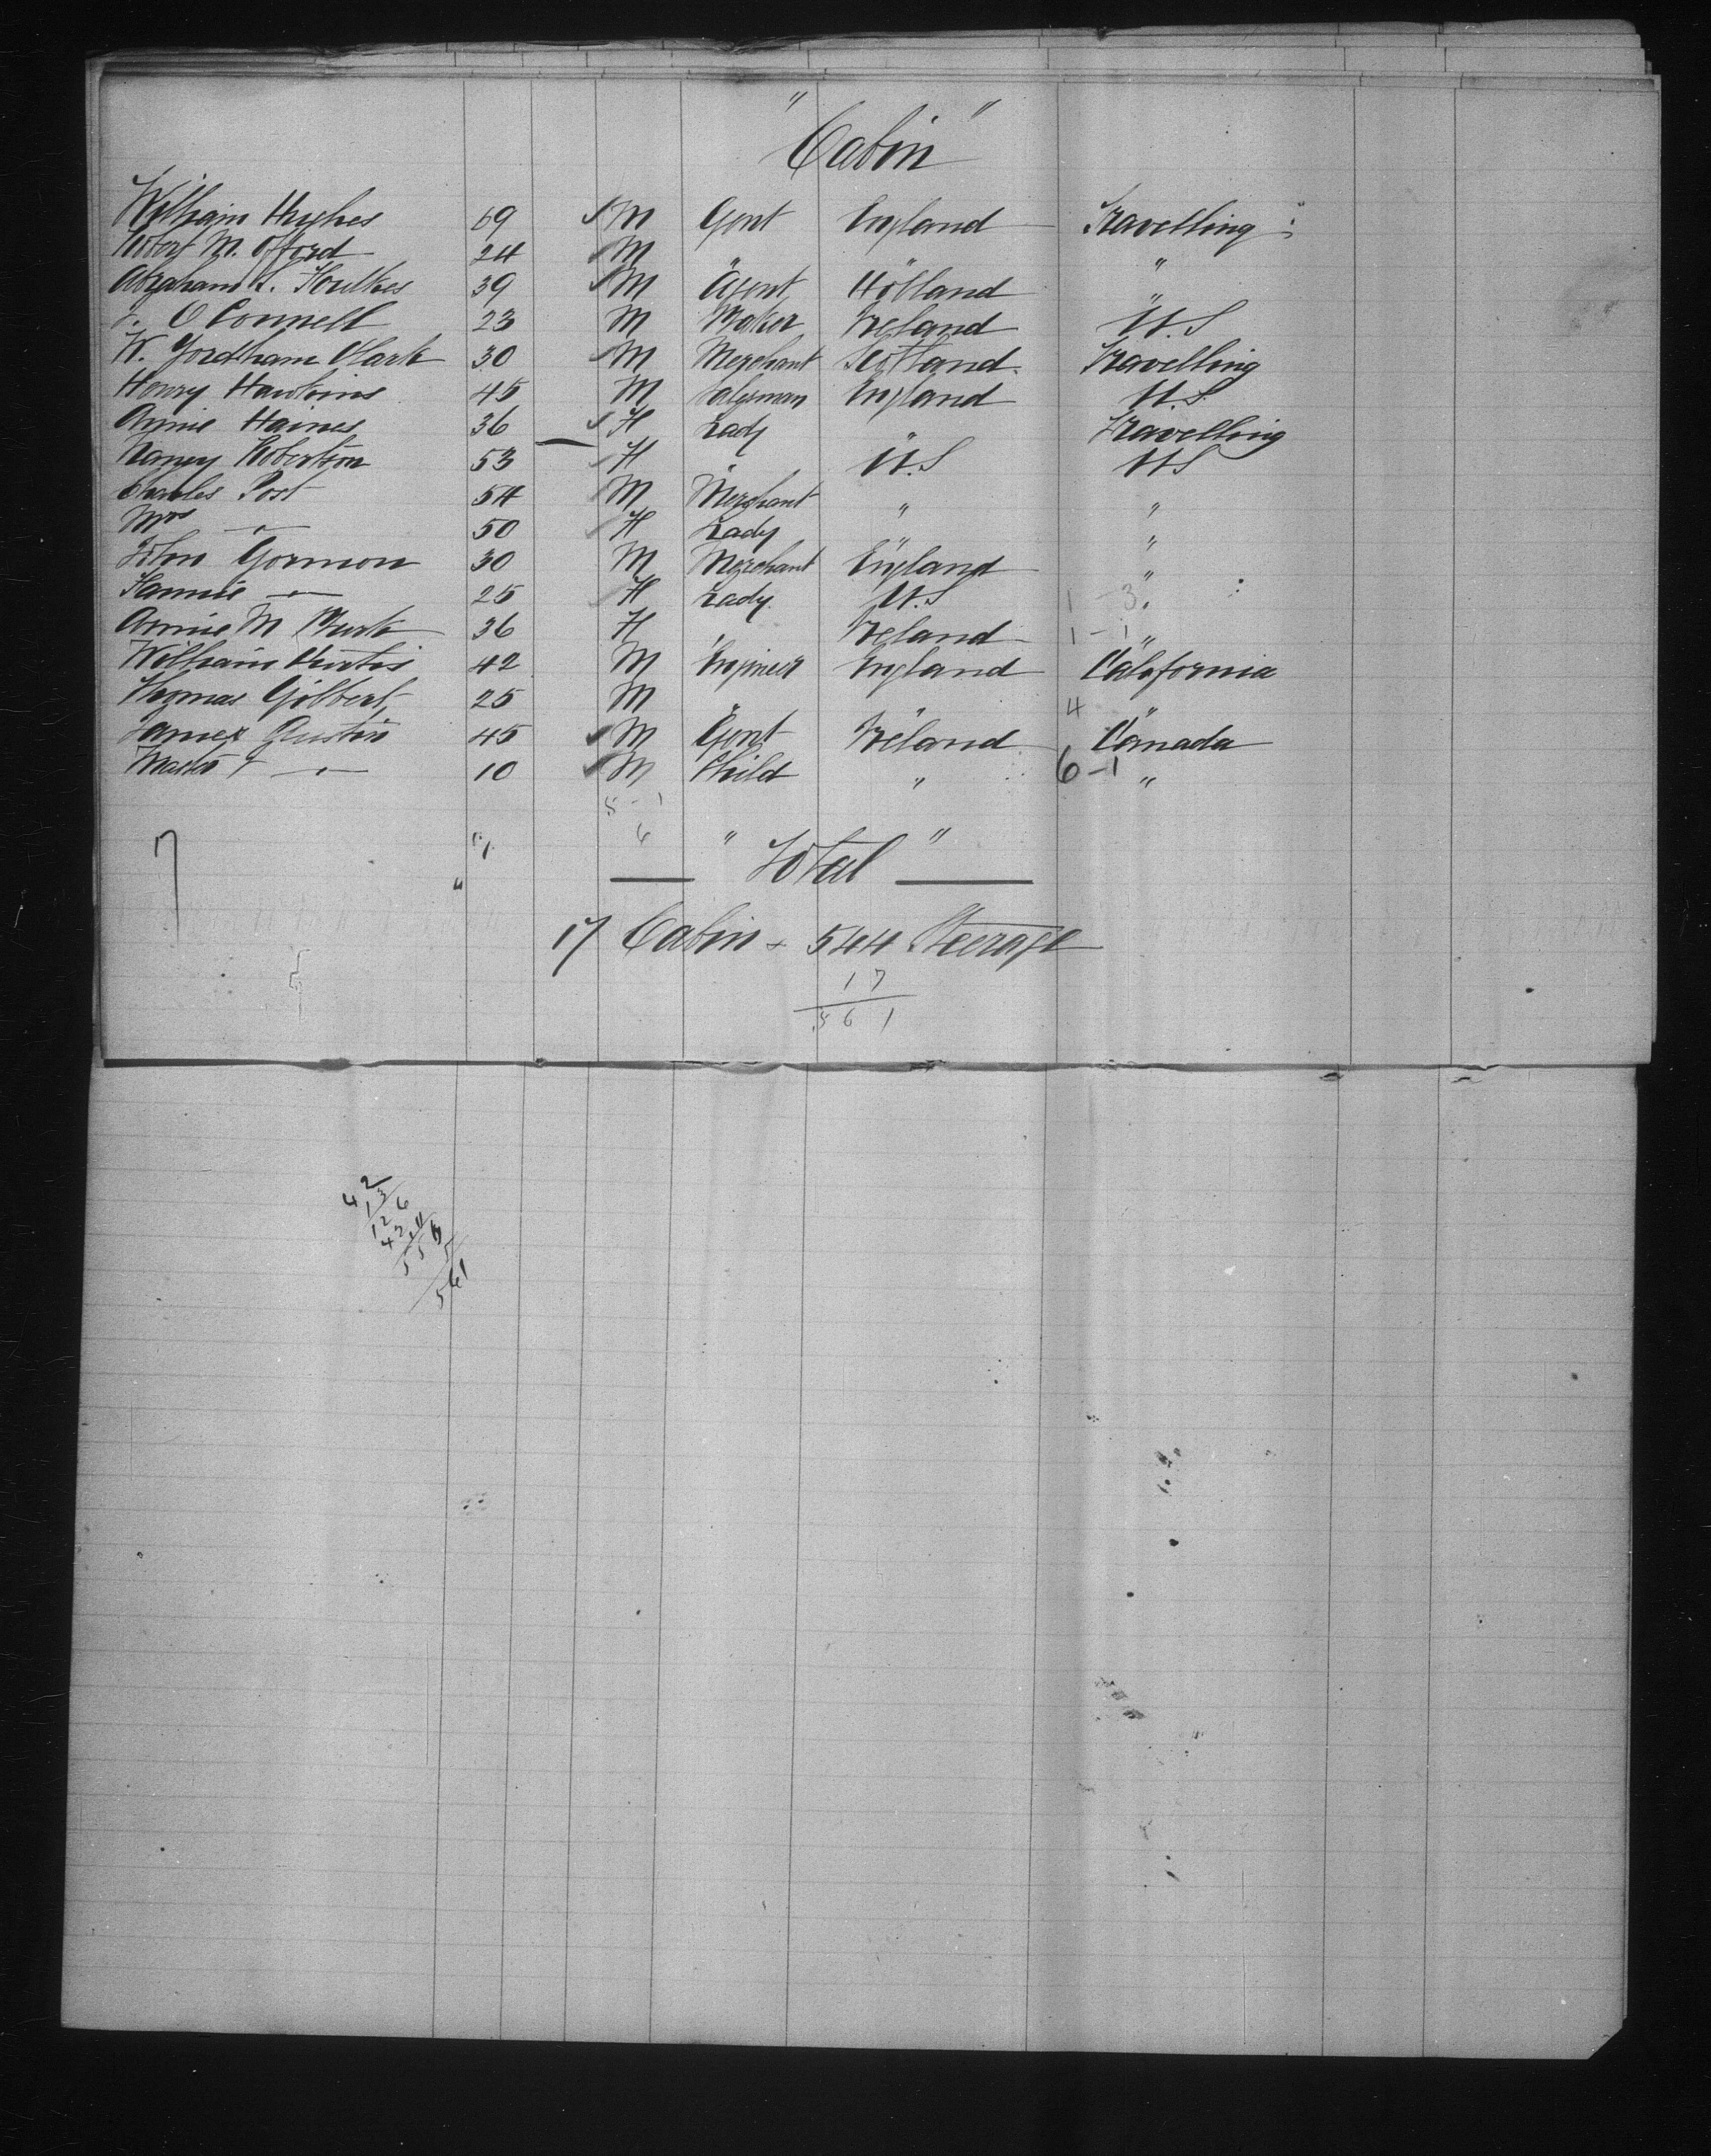 "Cabin"
William Hughes 69 M Gent England Travelling
Robert M. Offord 24 M " " "
Abraham S. 39 M Agent Holland "
O'Connell 23 M Baker Ireland U.S
W. Fordham Clark 30 M Merchant Scotland Travelling
Henry Hawkins 45 M Salesman England U.S.
Annie Haines 36 F Lady " Travelling
Nancy Robertson 53 F " U.S U.S
Charles Post 54 M Merchant " "
Mrs — " — 50 F Lady " "
John Gormon 30 M Merchant England "
Fannie — " — 25 F Lady U.S 1-3 "
Annie M Burk 36 F " Ireland 1-1 "
William Curtis 42 M Engineer England California
Thomas Gilbert 25 M " " 4 "
James Austin 45 M Gent Ireland Canada
Master — " — 10 M Child " 6-1 "
5-1
17 6
"Total"
17 Cabin + 544 Steerage
17
561
2
4 3
1 6
561